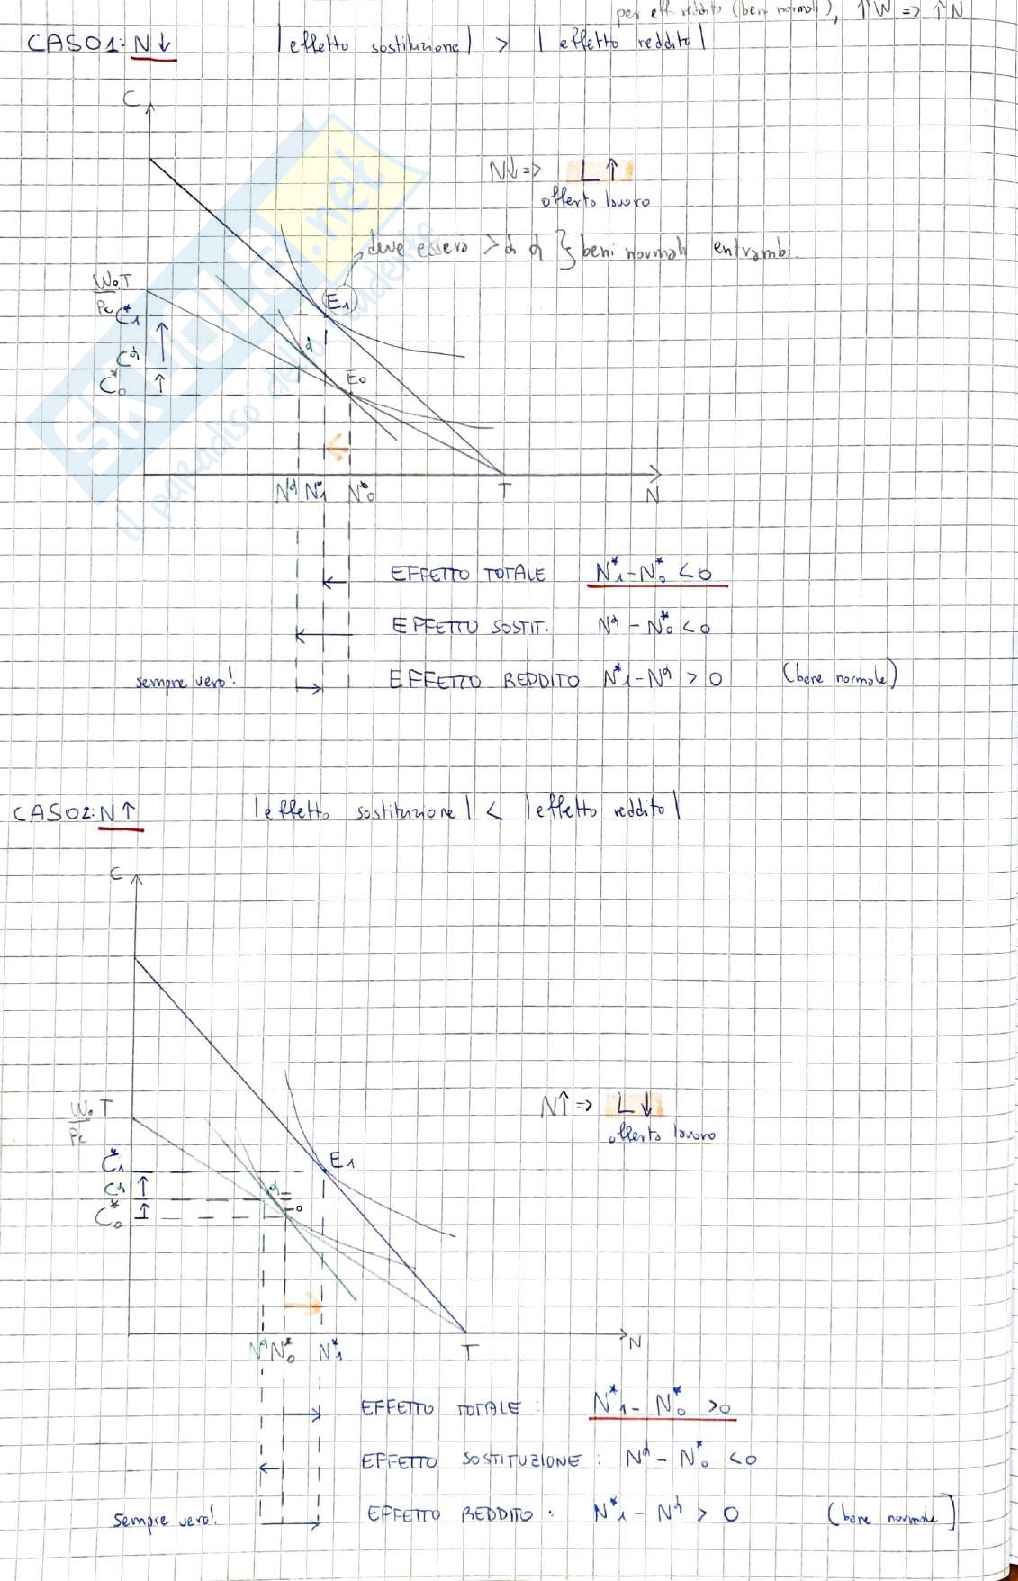 per eff. reddito (beni normali), ↑W => ↑N
CASO1: N↓ |effetto sostituzione| > |effetto reddito|
C
N↓ => L↑
offerta lavoro
deve essere > di d } beni normali entrambi.
W₀T
Pc
E₁
C₁*
d
Cᵈ
C₀*
E₀
Nᵈ N₁* N₀* T N
EFFETTO TOTALE N₁* - N₀* < 0
EFFETTO SOSTIT. Nᵈ - N₀* < 0
sempre vero! EFFETTO REDDITO N₁* - Nᵈ > 0 (bene normale)
CASO2: N↑ |effetto sostituzione| < |effetto reddito|
C
W₀T
Pc
N↑ => L↓
offerta lavoro
C₁*
E₁
Cᵈ
d
C₀*
E₀
Nᵈ N₀* N₁* T N
EFFETTO TOTALE: N₁* - N₀* > 0
EFFETTO SOSTITUZIONE: Nᵈ - N₀* < 0
sempre vero! EFFETTO REDDITO: N₁* - Nᵈ > 0 (bene normale)
SKUOLA.net
il paradiso dello studente